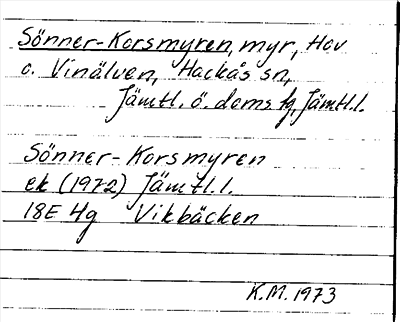 Sönner-Korsmyren, myr, Hov
o. Vinälven, Hackås sn,
Jämtl. ö. doms tg, Jämtl.l.
Sönner-Korsmyren
ek (1972) Jämtl.l.
18E 4g Vikbäcken
K.M. 1973